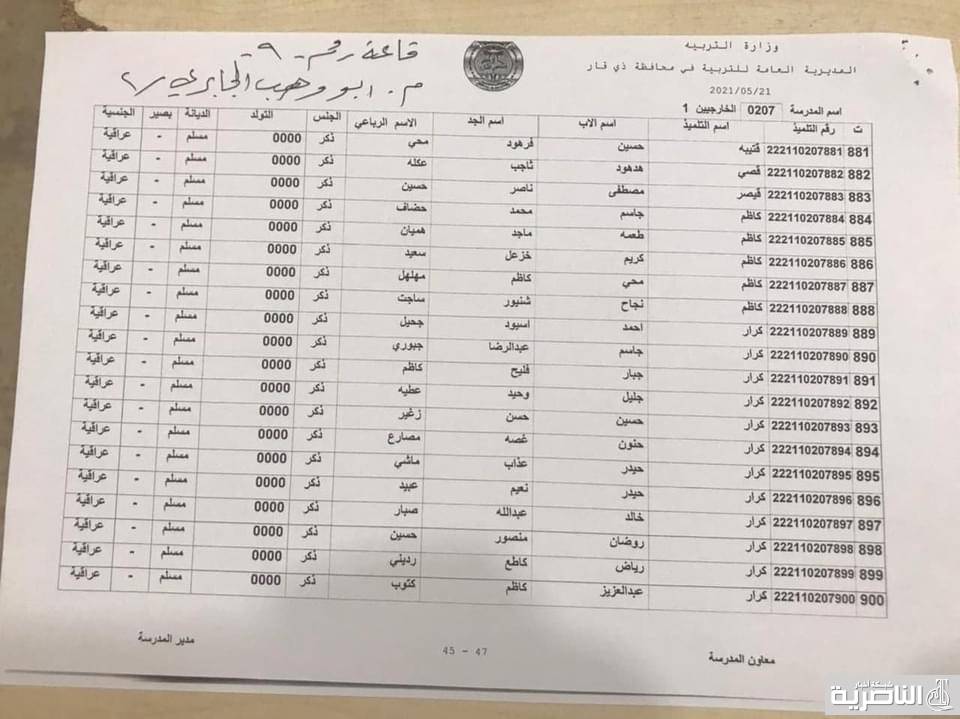 وزارة التربية
المديرية العامة للتربية في محافظة ذي قار
2021/05/21
قاعة رقم - ٩ -
م. ابو وهب الجابري / ٢
اسم المدرسة 0207 الخارجيين 1
ت رقم التلميذ اسم التلميذ اسم الاب اسم الجد الاسم الرباعي الجنس التولد الديانة بصير الجنسية
881 222110207881 قتيبه حسين فرهود محي ذكر 0000 مسلم - عراقية
882 222110207882 قصي هدهود ثاجب عكله ذكر 0000 مسلم - عراقية
883 222110207883 قيصر مصطفى ناصر حسين ذكر 0000 مسلم - عراقية
884 222110207884 كاظم جاسم محمد حضاف ذكر 0000 مسلم - عراقية
885 222110207885 كاظم طعمه ماجد هميان ذكر 0000 مسلم - عراقية
886 222110207886 كاظم كريم خزعل سعيد ذكر 0000 مسلم - عراقية
887 222110207887 كاظم محي كاظم مهلهل ذكر 0000 مسلم - عراقية
888 222110207888 كاظم نجاح شنيور ساجت ذكر 0000 مسلم - عراقية
889 222110207889 كرار احمد اسيود جحيل ذكر 0000 مسلم - عراقية
890 222110207890 كرار جاسم عبدالرضا جبوري ذكر 0000 مسلم - عراقية
891 222110207891 كرار جبار فليح كاظم ذكر 0000 مسلم - عراقية
892 222110207892 كرار جليل وحيد عطيه ذكر 0000 مسلم - عراقية
893 222110207893 كرار حسين حسن زغير ذكر 0000 مسلم - عراقية
894 222110207894 كرار حنون غصه مصارع ذكر 0000 مسلم - عراقية
895 222110207895 كرار حيدر عذاب ماشي ذكر 0000 مسلم - عراقية
896 222110207896 كرار حيدر نعيم عبيد ذكر 0000 مسلم - عراقية
897 222110207897 كرار خالد عبدالله صبار ذكر 0000 مسلم - عراقية
898 222110207898 كرار روضان منصور حسين ذكر 0000 مسلم - عراقية
899 222110207899 كرار رياض كاطع رديني ذكر 0000 مسلم - عراقية
900 222110207900 كرار عبدالعزيز كاظم كتوب ذكر 0000 مسلم - عراقية
معاون المدرسة 45 - 47 مدير المدرسة
شبكة أخبار الناصرية